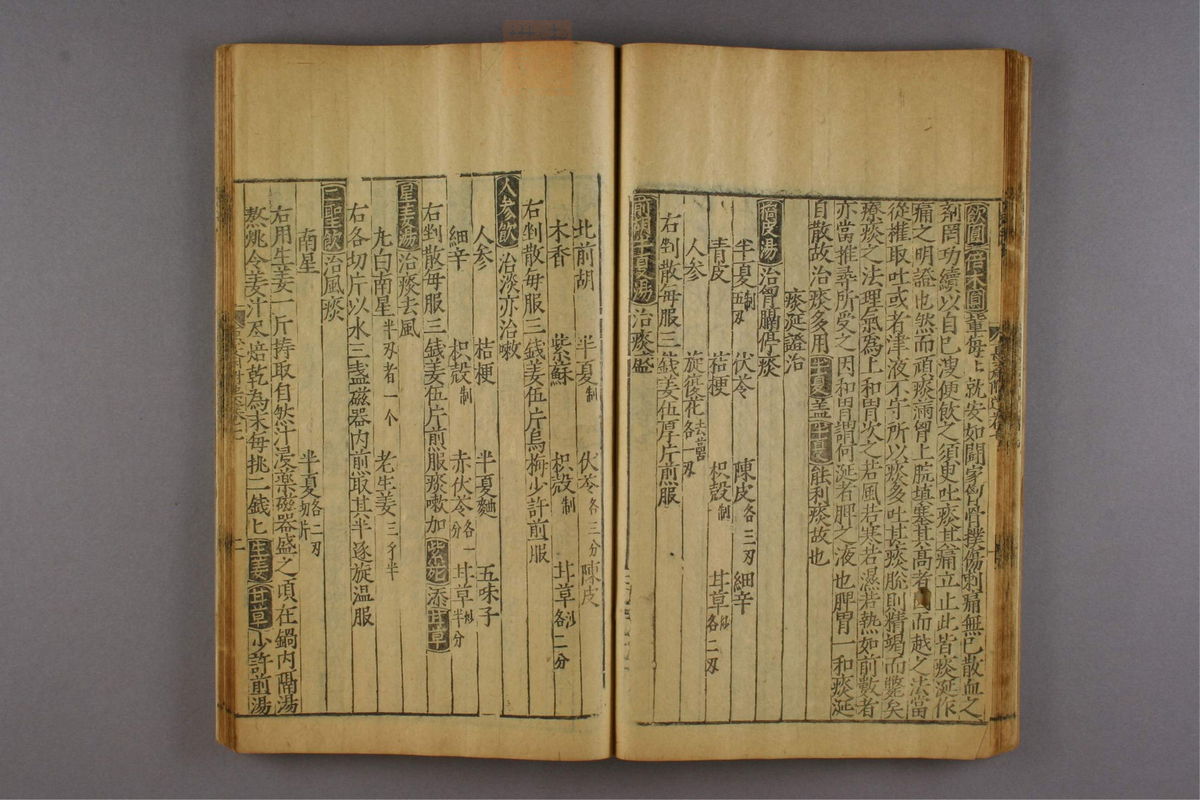 飲圓倍术圓輩每每就安如鬪家胷骨撲傷刺痛無已散血之
剤罔功續以自已溲便飲之須臾吐痰其痛立止此皆痰涎作
痛之明證也然而頑痰滿胷上脘填塞其高者因而越之法當
從權取吐或者津液不守所以痰多吐甚痰餘則精竭而斃矣
療痰之法理氣為上和胃次之若風若寒若濕若熱如前數者
亦當推尋所受之因和胃謂何涎者脾之液也脾胃一和痰涎
自散故治痰多用半夏盖半夏能利痰故也
痰涎證治
倍皮湯治胷膈停痰
半夏制五刃 伏苓 陳皮各三刃 細辛
青皮 桔梗 枳殻制 甘草各二刃
人参 旋復花去萼各一刃
右剉散每服三錢姜伍厚片煎服
前胡半夏湯治痰盛
北前胡 半夏制 伏苓各三分 陳皮
木香 紫蘇 枳殻制 甘草各二分
右剉散每服三錢姜伍片烏梅少許煎服
人参飲治痰亦治嗽
人参 桔梗 半夏麯 五味子
細辛 枳殻制 赤伏苓各一分 甘草半分
右剉散每服三錢姜伍片煎服痰嗽加紫菀添甘草
星姜湯治痰去風
九白南星半刃者一个 老生姜三寸半
右各切片以水三盞磁器内煎取其半逐旋温服
二聖飲治風痰
南星 半夏各二刃切片
右用生姜一斤持取自然汁浸藥磁器盛之頃在鍋内隔湯
熬桃令姜汁尽焙乾為末每挑二錢匕生姜甘草少許煎湯